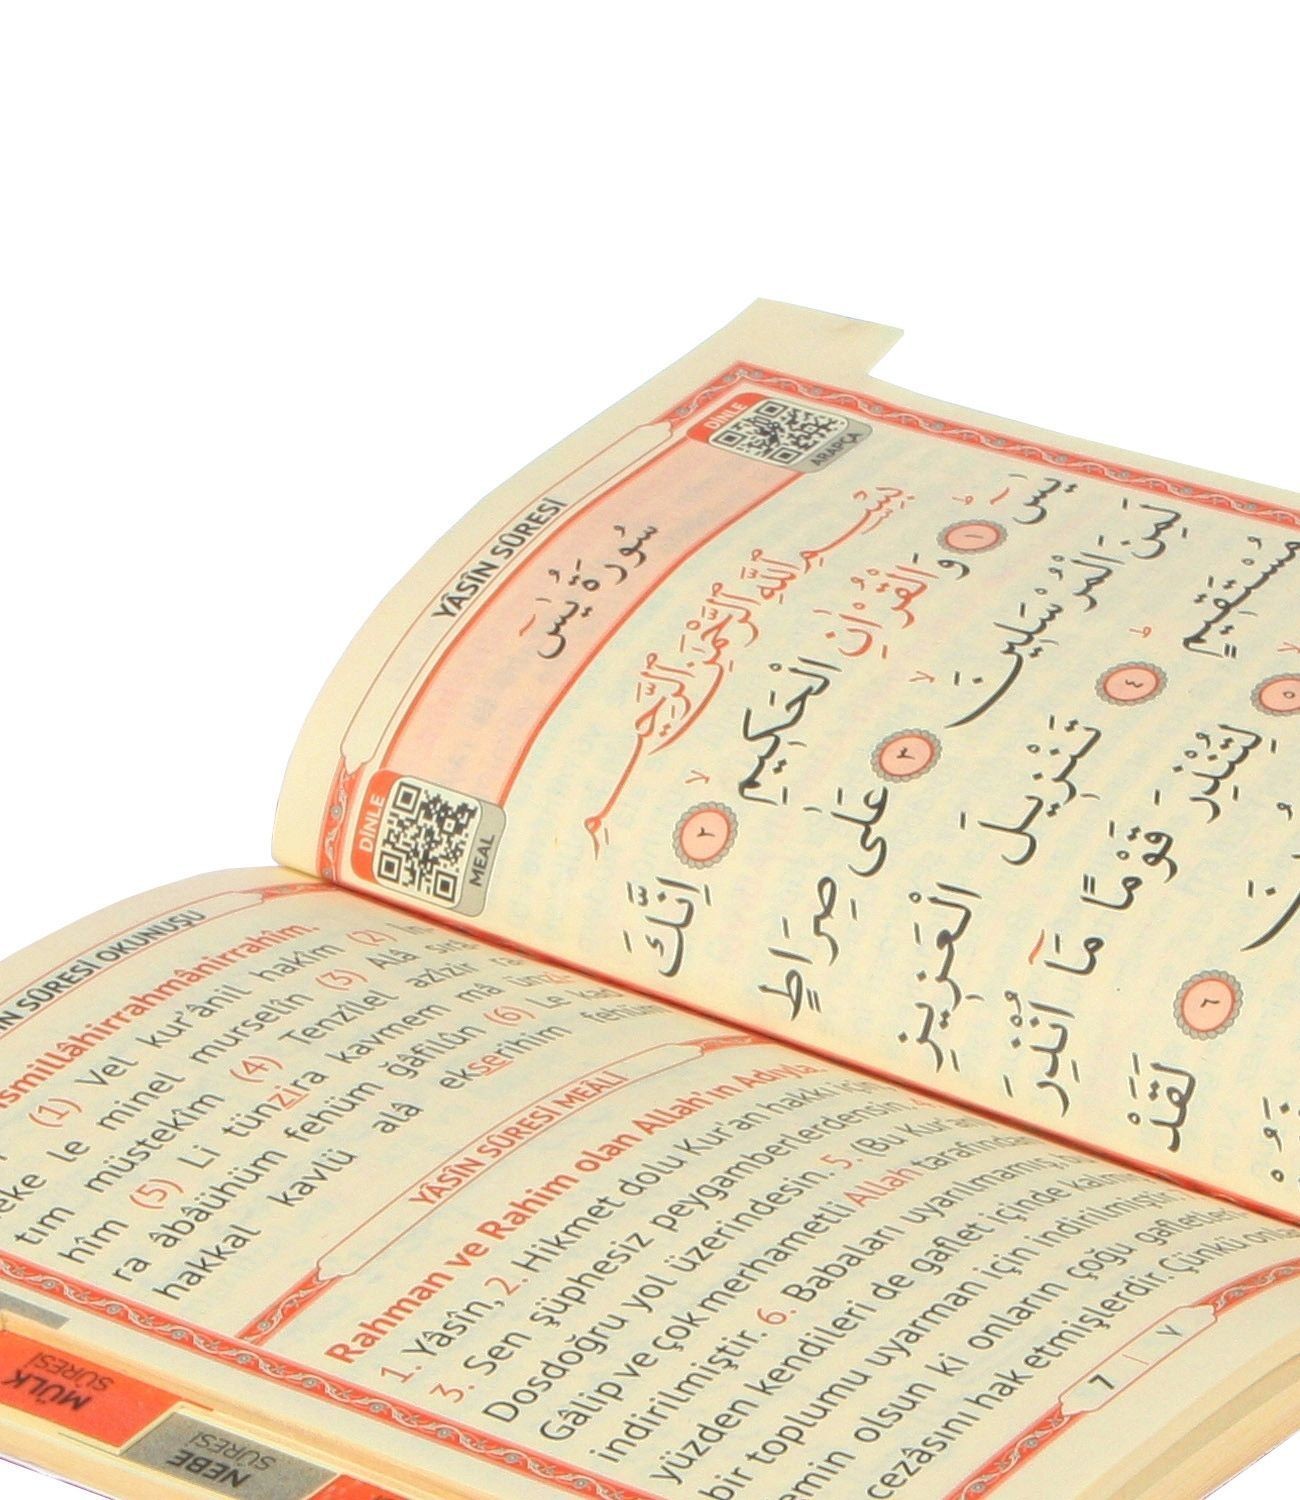 YÂSÎN SÛRESİ
DİNLE
ARAPÇA
سُورَةُ يٰسٓ
DİNLE
MEAL
بِسْمِ اللّٰهِ الرَّحْمٰنِ الرَّحِيمِ
يٰسٓ ١ وَالْقُرْاٰنِ الْحَكِيمِ ٢ اِنَّكَ
لَمِنَ الْمُرْسَلِينَ ٣ عَلٰى صِرَاطٍ
مُسْتَقِيمٍ ٤ تَنْزِيلَ الْعَزِيزِ
٥ لِتُنْذِرَ قَوْمًا مَٓا اُنْذِرَ
٦ لَقَدْ
SÛRESİ OKUNUŞU
(1) Vel kur'ânil hakîm (2) İn-
neke le minel murselîn (3) Alâ sırâ
tım müstekîm (4) Tenzîlel azîzir ra
hîm (5) Li tünzira kavmem mâ ünzi
ra âbâühüm fehüm ğâfilûn (6) Le kad
hakkal kavlü alâ ekserihim fehüm
YÂSÎN SÛRESİ MEÂLİ
Rahman ve Rahim olan Allah'ın Adıyla.
1. Yâsîn, 2. Hikmet dolu Kur'an hakkı için
3. Sen şüphesiz peygamberlerdensin.
Dosdoğru yol üzerindesin. 5. (Bu Kur'an
Gâlip ve çok merhametli Allah tarafından
indirilmiştir. 6. Babaları uyarılmamış,
yüzden kendileri de gaflet içinde
bir toplumu uyarman için indirilmiştir.
emin olsun ki onların çoğu gafletleri
cezâsını hak etmişlerdir. Çünkü
7 | ٧
MÜLK
SÛRESİ
NEBE
SÛRESİ